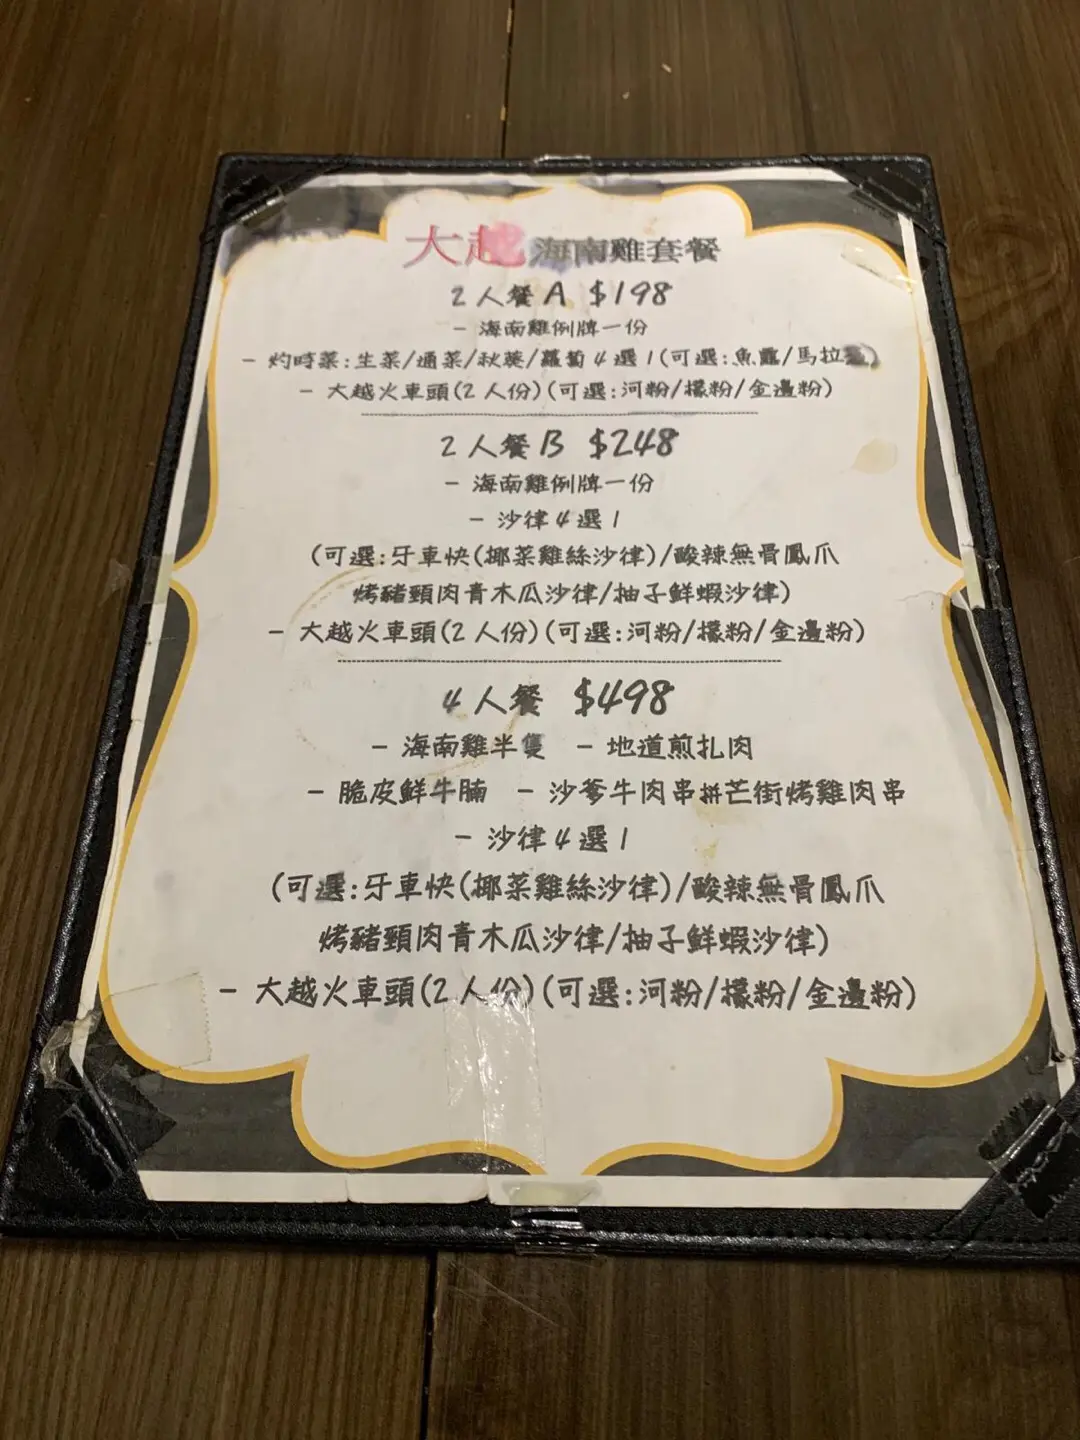 大越海南雞套餐
2人餐A $198
- 海南雞例牌一份
- 灼時菜:生菜/通菜/秋葵/蘿蔔4選1(可選:魚露/馬拉盞)
- 大越火車頭(2人份)(可選:河粉/檬粉/金邊粉)
2人餐B $248
- 海南雞例牌一份
- 沙律4選1
(可選:牙車快(椰菜雞絲沙律)/酸辣無骨鳳爪
烤豬頸肉青木瓜沙律/柚子鮮蝦沙律)
- 大越火車頭(2人份)(可選:河粉/檬粉/金邊粉)
4人餐 $498
- 海南雞半隻 - 地道煎扎肉
- 脆皮鮮牛腩 - 沙爹牛肉串拼芒街烤雞肉串
- 沙律4選1
(可選:牙車快(椰菜雞絲沙律)/酸辣無骨鳳爪
烤豬頸肉青木瓜沙律/柚子鮮蝦沙律)
- 大越火車頭(2人份)(可選:河粉/檬粉/金邊粉)